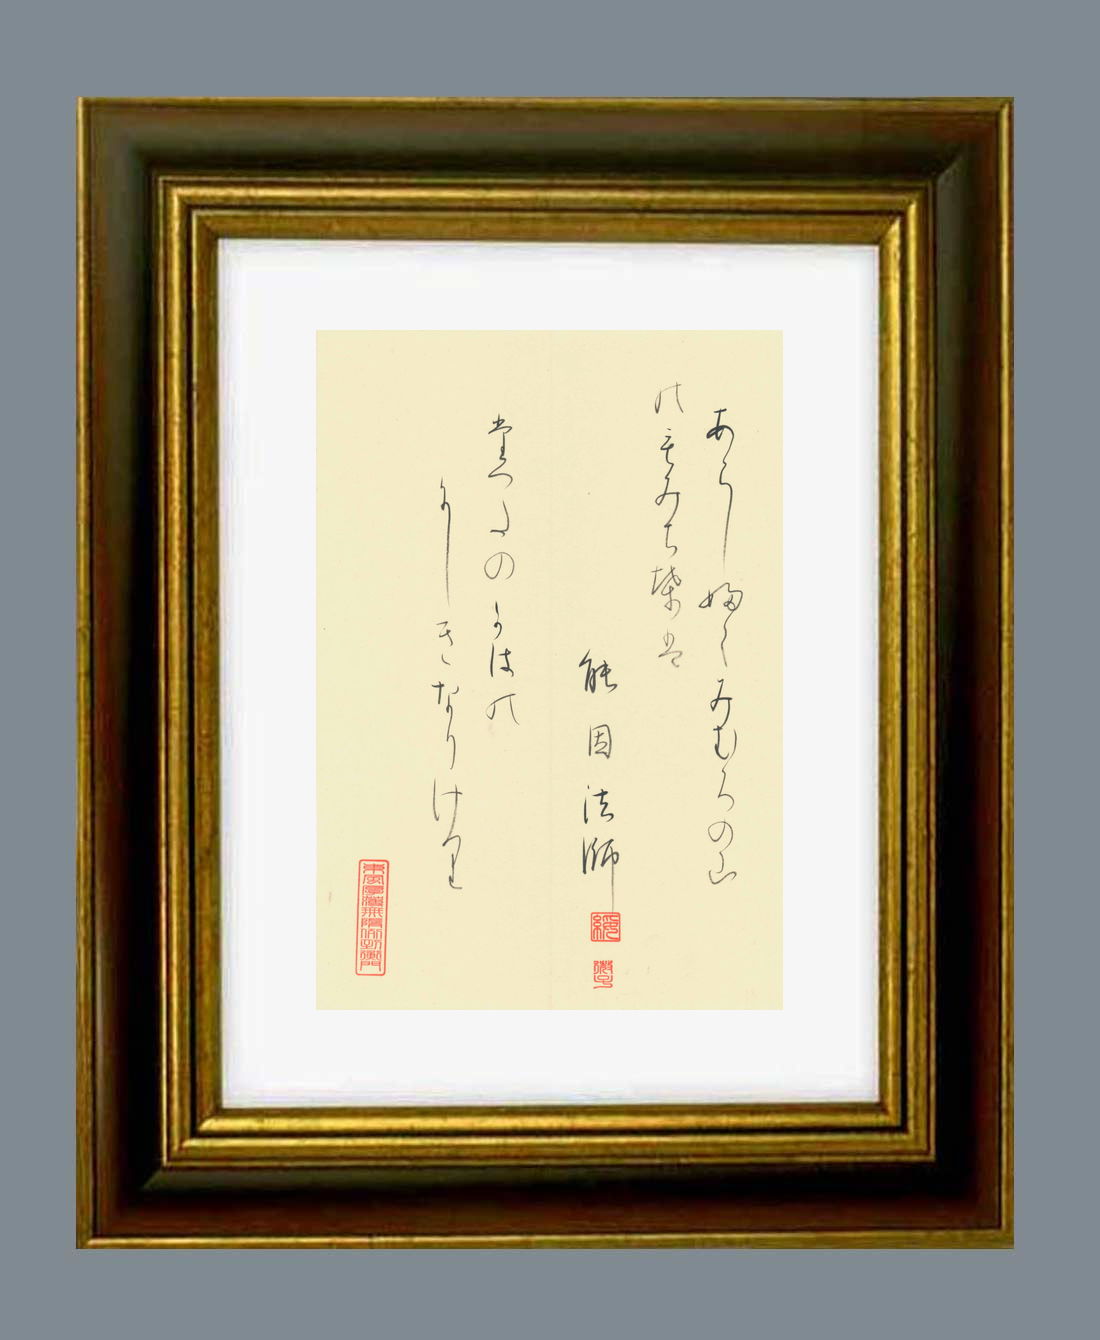 あらしふくみむろの山
のもみち葉は
能因法師
たつたのかはの
にしきなりけり